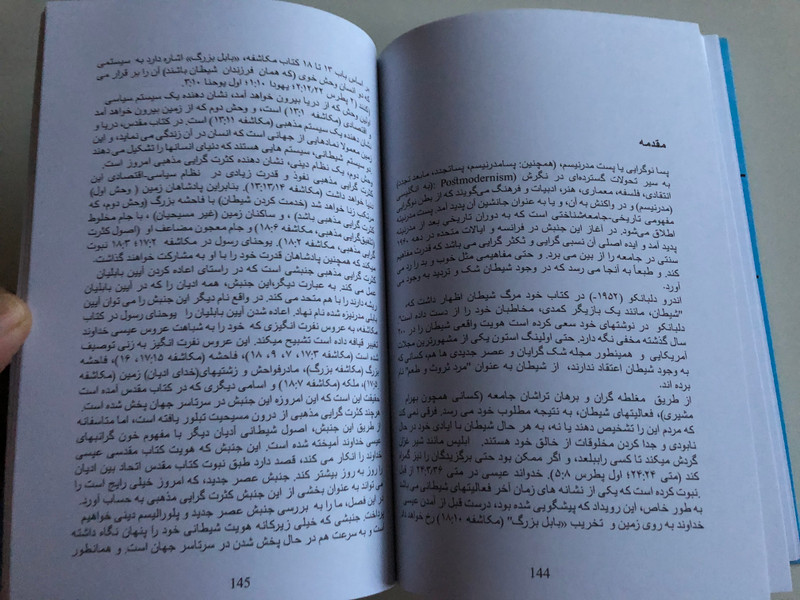 مقدمه
پسا نوگرایی یا پست مدرنیسم، (همچنین: پسامدرنیسم، پساتجدد، مابعد تجدد)
به سیر تحولات گسترده‌ای در نگرش (Postmodernism :به انگلیسی
انتقادی، فلسفه، معماری، هنر، ادبیات و فرهنگ می‌گویند که از بطن نوگرایی
(مدرنیسم) و در واکنش به آن، و یا به عنوان جانشین آن پدید آمد. پست مدرنیته
مفهومی تاریخی-جامعه‌شناختی است که به دوران تاریخی بعد از مدرنیته
اطلاق می‌شود. در آغاز این جنبش در فرانسه و ایالات متحده در دهه ۱۹۶۰
پدید آمد و ایده اصلی آن نسبی گرایی و تکثر گرایی می باشد که قدرت مفاهیم
سنتی در جامعه را از بین می برد. و حتی مفاهیمی مثل خوب و بد را رد می
کند. و طبعاً به آنجا می رسد که در وجود شیطان شک و تردید به وجود می
آورد.
اندرو دلبانکو (۱۹۵۲-) در کتاب خود مرگ شیطان اظهار داشت که،
"شیطان، مانند یک بازیگر کمدی، مخاطبان خود را از دست داده است"
دلبانکو در نوشتهای خود سعی کرده است هویت واقعی شیطان را در ۲۰۰
سال گذشته مخفی نگه دارد. حتی اولینگ استون یکی از مشهورترین مجلات
آمریکایی و همینطور مجله شک گرایان و عصر جدیدی ها هم، کسانی که
به وجود شیطان اعتقاد ندارند، از شیطان به عنوان "مرد ثروت و طعم" نام
برده اند.
از طریق مغلطه گران و برهان تراشان جامعه (کسانی همچون بهرام
مشیری)، فعالیتهای شیطان، به نتیجه مطلوب خود می رسد. فرقی نمی کند
که مردم این را تشخیص دهند یا نه، به هر حال شیطان با ایادی خود در حال
نابودی و جدا کردن مخلوقات از خالق خود هستند. ابلیس مانند شیر غران
گردش میکند تا کسی راببلعد، و اگر ممکن بود حتی برگزیدگان را نیز گمراه
کند (متی ۲۴:۲۴؛ اول پطرس ۵:۸). خدواند عیسی در متی ۲۴:۳،۳۶ از قبل
نبوت کرده است که یکی از نشانه های زمان آخر فعالیتهای شیطانی می باشد.
به طور خاص، این رویداد که پیشگویی شده بود، درست قبل از آمدن عیسی
خداوند به روی زمین و تخریب «بابل بزرگ" (مکاشفه ۱۸:۱۰) رخ خواهد داد.
144
بر اساس باب ۱۳ تا ۱۸ کتاب مکاشفه، «بابل بزرگ» اشاره دارد به سیستمی
که دو انسان وحش خوی (که همان فرزندان شیطان باشند) آن را بر قرار می
کنند (۲ پطرس ۲:۱۲،۲۲؛ یهودا ۱:۱۰؛ اول یوحنا ۳:۱۰.
اولین وحش که از دریا بیرون خواهد آمد، نشان دهنده یک سیستم سیاسی
و اقتصادی (مکاشفه ۱۳:۱) است، و وحش دوم که از زمین بیرون خواهد آمد
نشان‌دهنده یک سیستم مذهبی (مکاشفه ۱۳:۱۱) است. در کتاب مقدس، دریا و
زمین معمولا نمادهایی از جهانی است که انسان در آن زندگی می نماید، و این
دو سیستم شیطانی، سیستم هایی هستند که دنیای انسانها را تشکیل می دهند
وحش دوم، یک نظام دینی، نشان دهنده کثرت گرایی مذهبی امروز است.
کثرت گرایی مذهبی نفوذ و قدرت زیادی در نظام سیاسی-اقتصادی این
دنیا خواهد داشت (مکاشفه ۱۳:۱۳،۱۴). بنابراین پادشاهان زمین ( وحش اول)
مرتکب زنا خواهد شد (خدمت کردن شیطان) با فاحشه بزرگ (وحش دوم، که
کثرت گرایی مذهبی باشد) ، و ساکنان زمین (غیر مسیحیان) ، با جام مخلوط
(تلفیق‌گرایی مذهبی، مکاشفه ۱۸:۶) و جام معجون مضاعف او (اصول کثرت
گرایی مذهبی، مکاشفه ۱۸:۲). یوحنای رسول در مکاشفه ۱۷:۲؛ ۱۸:۳ نبوت
میکند که همچنین پادشاهان قدرت خود را با او به مشارکت خواهند گذاشت.
کثرت گرایی مذهبی جنبشی است که در راستای اعاده کردن آیین بابلیان
عمل می کند. به عبارت دیگر،این جنبش، همه ادیان را که در آیین بابلیان
ریشه دارند را با هم متحد می کند. در واقع نام دیگر این جنبش را می توان آیین
بابلی مدرنیزه شده نام نهاد. اعاده شدن آیین بابلیان را یوحنای رسول در کتاب
مکاشفه، به عروس نفرت انگیزی که خود را به شباهت عروس عیسی خداوند
تغییر قیافه داده است تشبیح میکند. این عروس نفرت انگیز به زنی توصیف
شده است (مکاشفه ۱۷:۳، ۷، ۹، ۱۸)، فاحشه (مکاشفه ۱۷:۱۵، ۱۶)، فاحشه
بزرگ (مکاشفه بزرگ)، مادرفواحش و زشتیهای(خدای ادیان) زمین (مکاشفه
۱۷:۵)، ملکه (مکاشفه ۱۸:۷) و اسامی دیگری که در کتاب مقدس آمده است
حقیقت این است که این امروزه این جنبش در سرتاسر جهان پخش شده است.
هرچند کثرت گرایی مذهبی از درون مسیحیت تبلور یافته است، اما متاسفانه
از طریق این جنبش، اصول شیطانی آدیان دیگر با مفهوم خون گرانبهای
عیسی خداوند آمیخته شده است. این جنبش که هویت کتاب مقدسی عیسی
خداوند را انکار می کند، قصد دارد طبق نبوت کتاب مقدس اتحاد بین ادیان
را روز به روز بیشتر کند. جنبش عصر جدید، که امروز خیلی رایج است را
می تواند به عنوان بخشی از این جنبش کثرت گرایی مذهبی به حساب آورند.
در این فصل، ما را به بررسی جنبش عصر جدید و پلورالیسم دینی خواهیم
پرداخت. جنبشی که خیلی زیرکانه هویت شیطانی خود را پنهان نگاه داشته
است و به سرعت هم در حال پخش شدن در سرتاسر جهان است. و همانطور
145